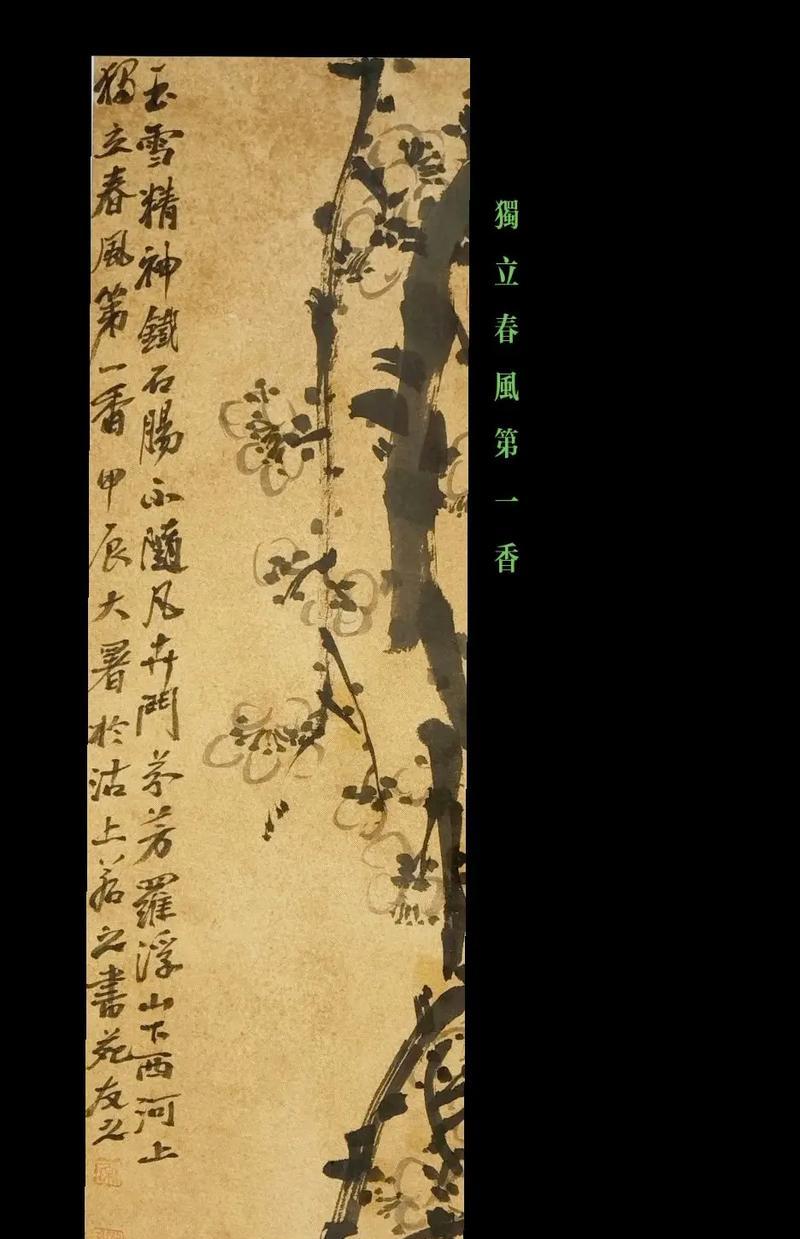 獨立春風第一香
玉雪精神鐵石腸不隨凡卉鬥芬芳羅浮山下西河上
獨立春風第一香甲辰大暑於沽上若之書苑友